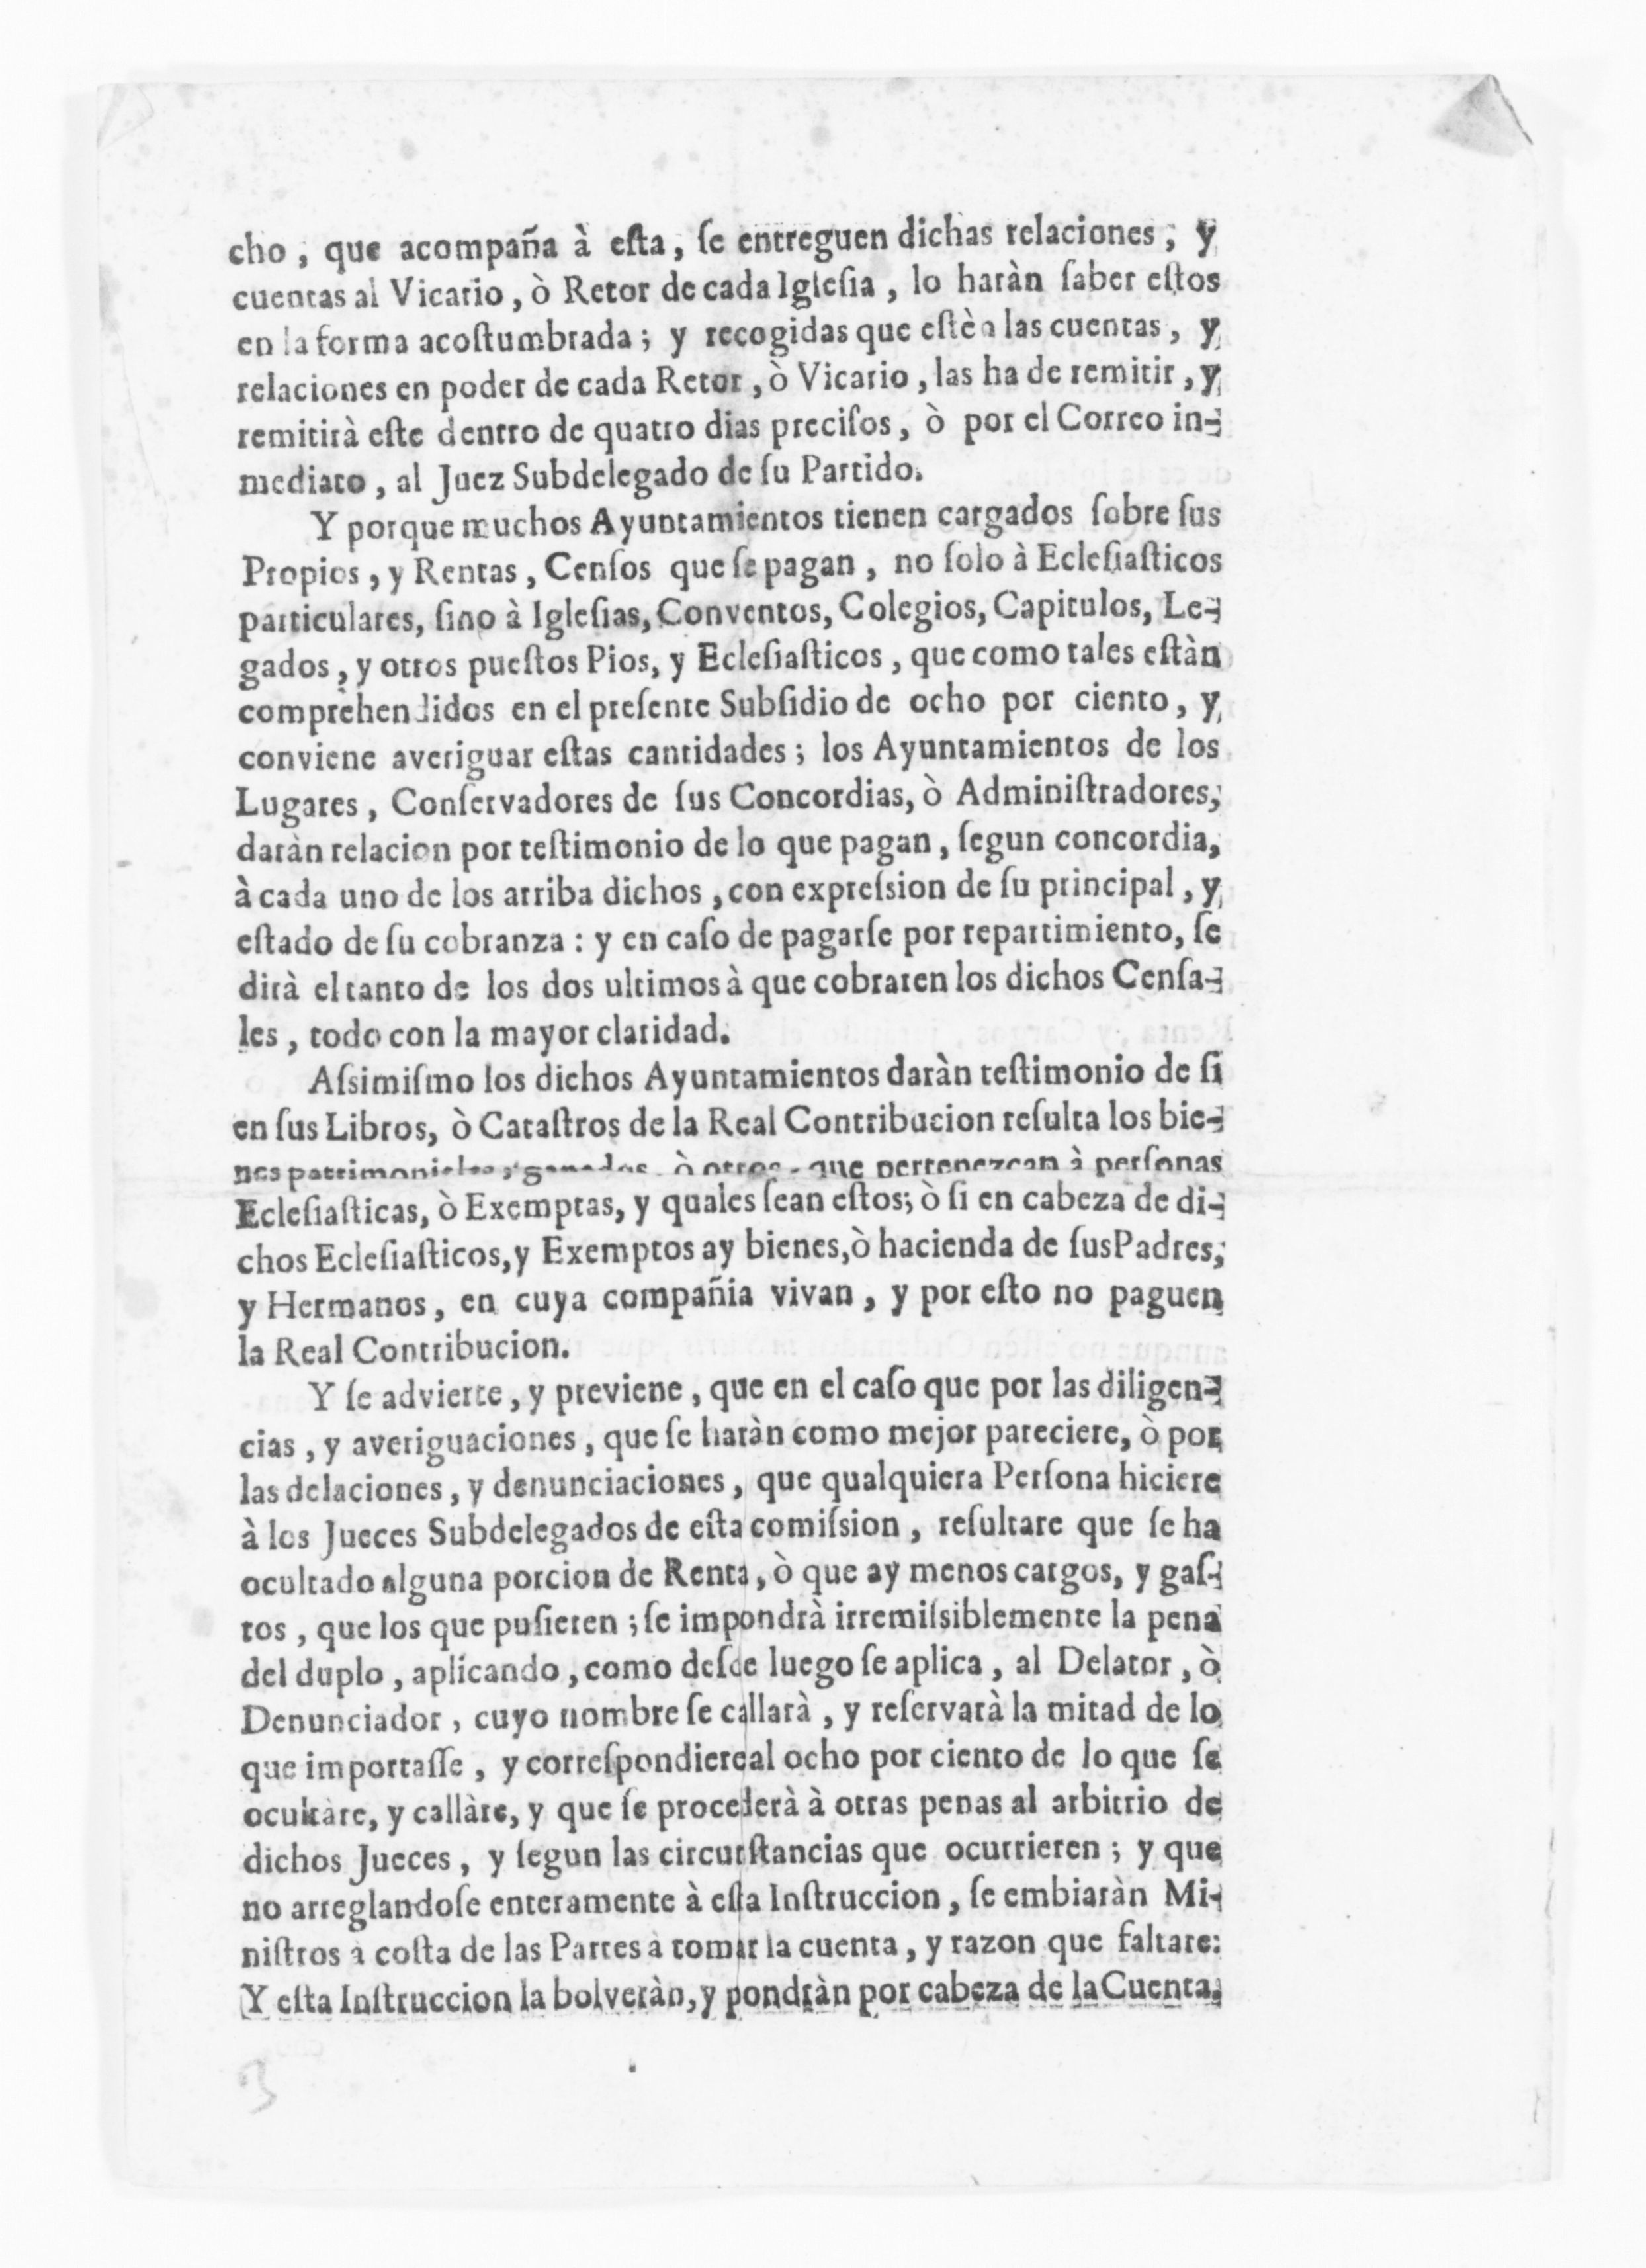 cho, que acompaña à eſta, ſe entreguen dichas relaciones; y
cuentas al Vicario, ò Retor de cada Igleſia, lo haràn ſaber eſtos
en la forma acoſtumbrada; y recogidas que eſtèn las cuentas, y
relaciones en poder de cada Retor, ò Vicario, las ha de remitir, y
remitirà eſte dentro de quatro dias preciſos, ò por el Correo in-
mediato, al Juez Subdelegado de ſu Partido.
Y porque muchos Ayuntamientos tienen cargados ſobre ſus
Propios, y Rentas, Cenſos que ſe pagan, no ſolo à Ecleſiaſticos
particulares, ſino à Igleſias, Conventos, Colegios, Capitulos, Le-
gados, y otros pueſtos Pios, y Ecleſiaſticos, que como tales eſtàn
comprèhendidos en el preſente Subſidio de ocho por ciento, y
conviene averiguar eſtas cantidades; los Ayuntamientos de los
Lugares, Conſervadores de ſus Concordias, ò Adminiſtradores,
daràn relacion por teſtimonio de lo que pagan, ſegun concordia,
à cada uno de los arriba dichos, con expreſsion de ſu principal, y
eſtado de ſu cobranza: y en caſo de pagarſe por repartimiento, ſe
dirà el tanto de los dos ultimos à que cobraren los dichos Cenſa-
les, todo con la mayor claridad.
Aſsimiſmo los dichos Ayuntamientos daràn teſtimonio de ſi
en ſus Libros, ò Cataſtros de la Real Contribucion reſulta los bie-
nes patrimoniales, ganados, ò otros, que pertenezcan à perſonas
Ecleſiaſticas, ò Exemptas, y quales ſean eſtos; ò ſi en cabeza de di-
chos Ecleſiaſticos, y Exemptos ay bienes, ò hacienda de ſus Padres,
y Hermanos, en cuya compañia vivan, y por eſto no paguen
la Real Contribucion.
Y ſe advierte, y previene, que en el caſo que por las diligen-
cias, y averiguaciones, que ſe haràn como mejor pareciere, ò por
las delaciones, y denunciaciones, que qualquiera Perſona hiciere
à los Jueces Subdelegados de eſta comiſsion, reſultare que ſe ha
ocultado alguna porcion de Renta, ò que ay menos cargos, y gaſ-
tos, que los que puſieren; ſe impondrà irremiſsiblemente la pena
del duplo, aplicando, como deſde luego ſe aplica, al Delator, ò
Denunciador, cuyo nombre ſe callarà, y reſervarà la mitad de lo
que importaſſe, y correſpondiere al ocho por ciento de lo que ſe
ocultàre, y callàre, y que ſe procederà à otras penas al arbitrio de
dichos Jueces, y ſegun las circunſtancias que ocurrieren; y que
no arreglandoſe enteramente à eſta Inſtruccion, ſe embiaràn Mi-
niſtros à coſta de las Partes à tomar la cuenta, y razon que faltare:
Y eſta Inſtruccion la bolveràn, y pondràn por cabeza de la Cuenta.
3